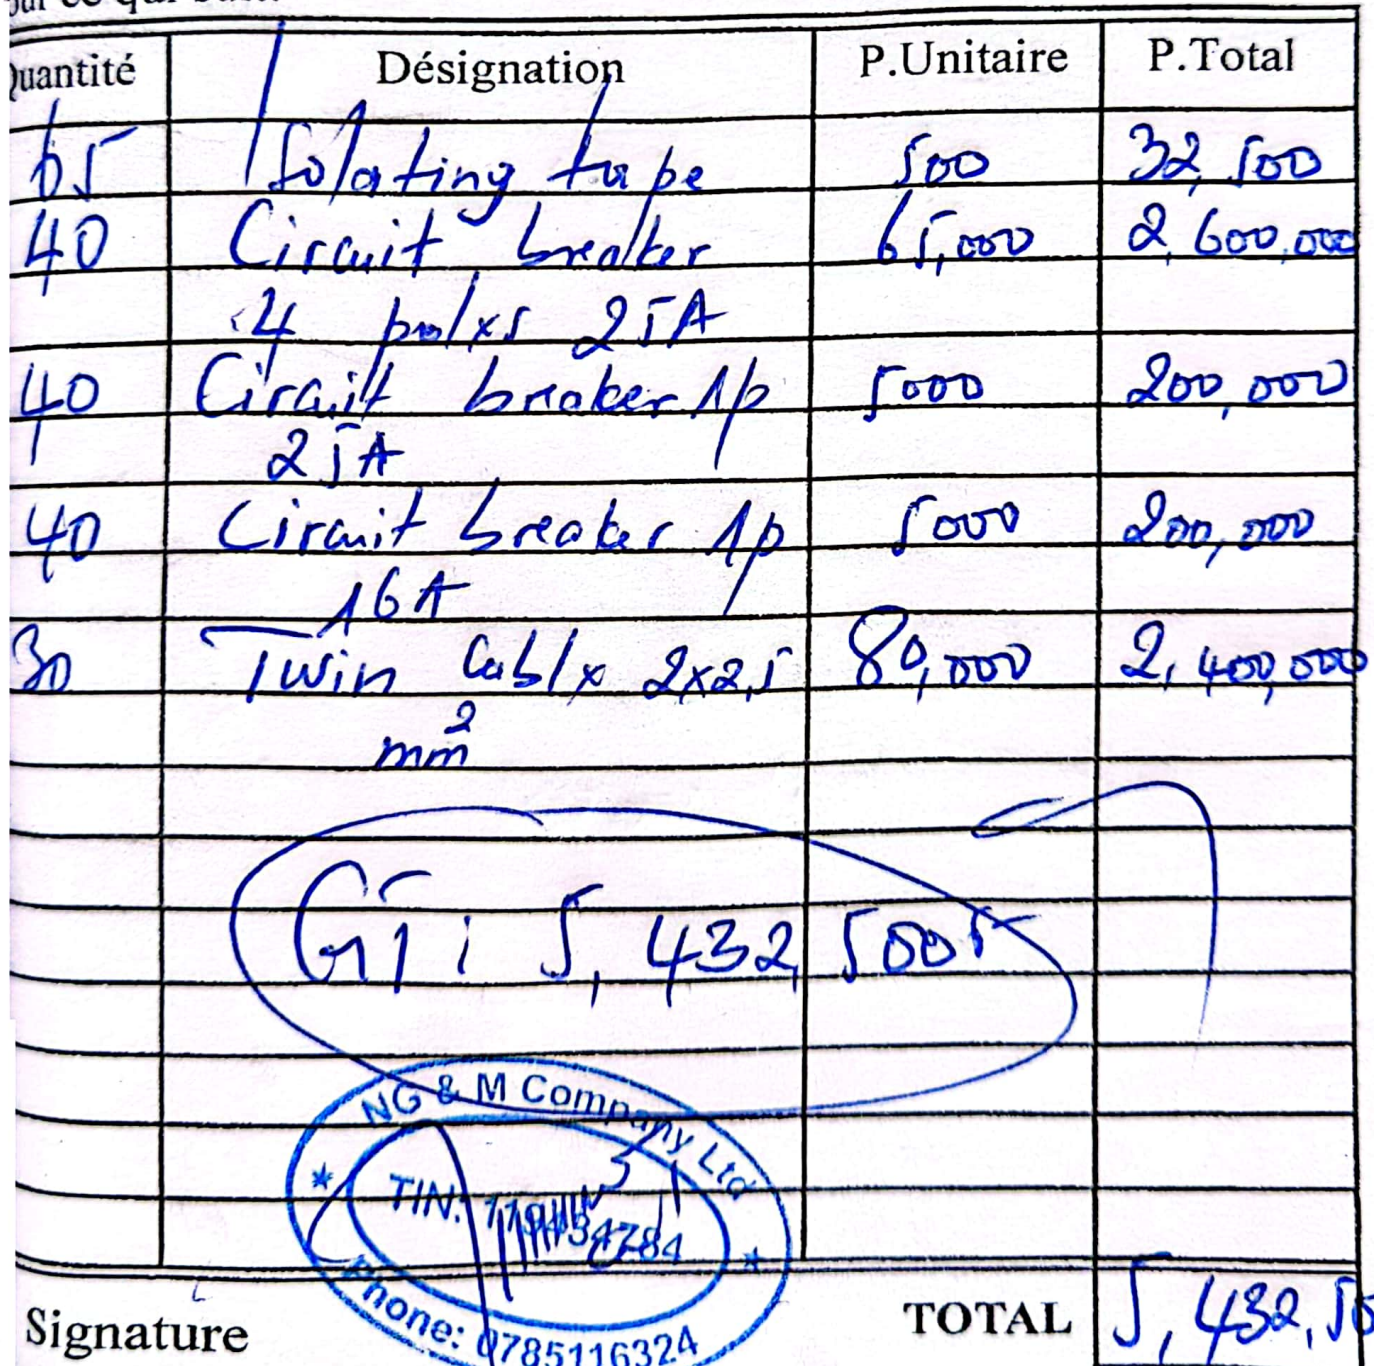 ce qui suit.
Quantité Désignation P.Unitaire P.Total
65 Isolating tape 500 32,500
40 Circuit breaker 65,000 2,600,000
4 poles 25A
40 Circuit breaker 1p 5000 200,000
25A
40 Circuit breaker 1p 5000 200,000
16A
30 Twin Cable 2x2,5 80,000 2,400,000
mm²
GT: 5,432,500F
NG & M Company Ltd
TIN: 119434784
Phone: 0785116324
Signature TOTAL 5,432,50